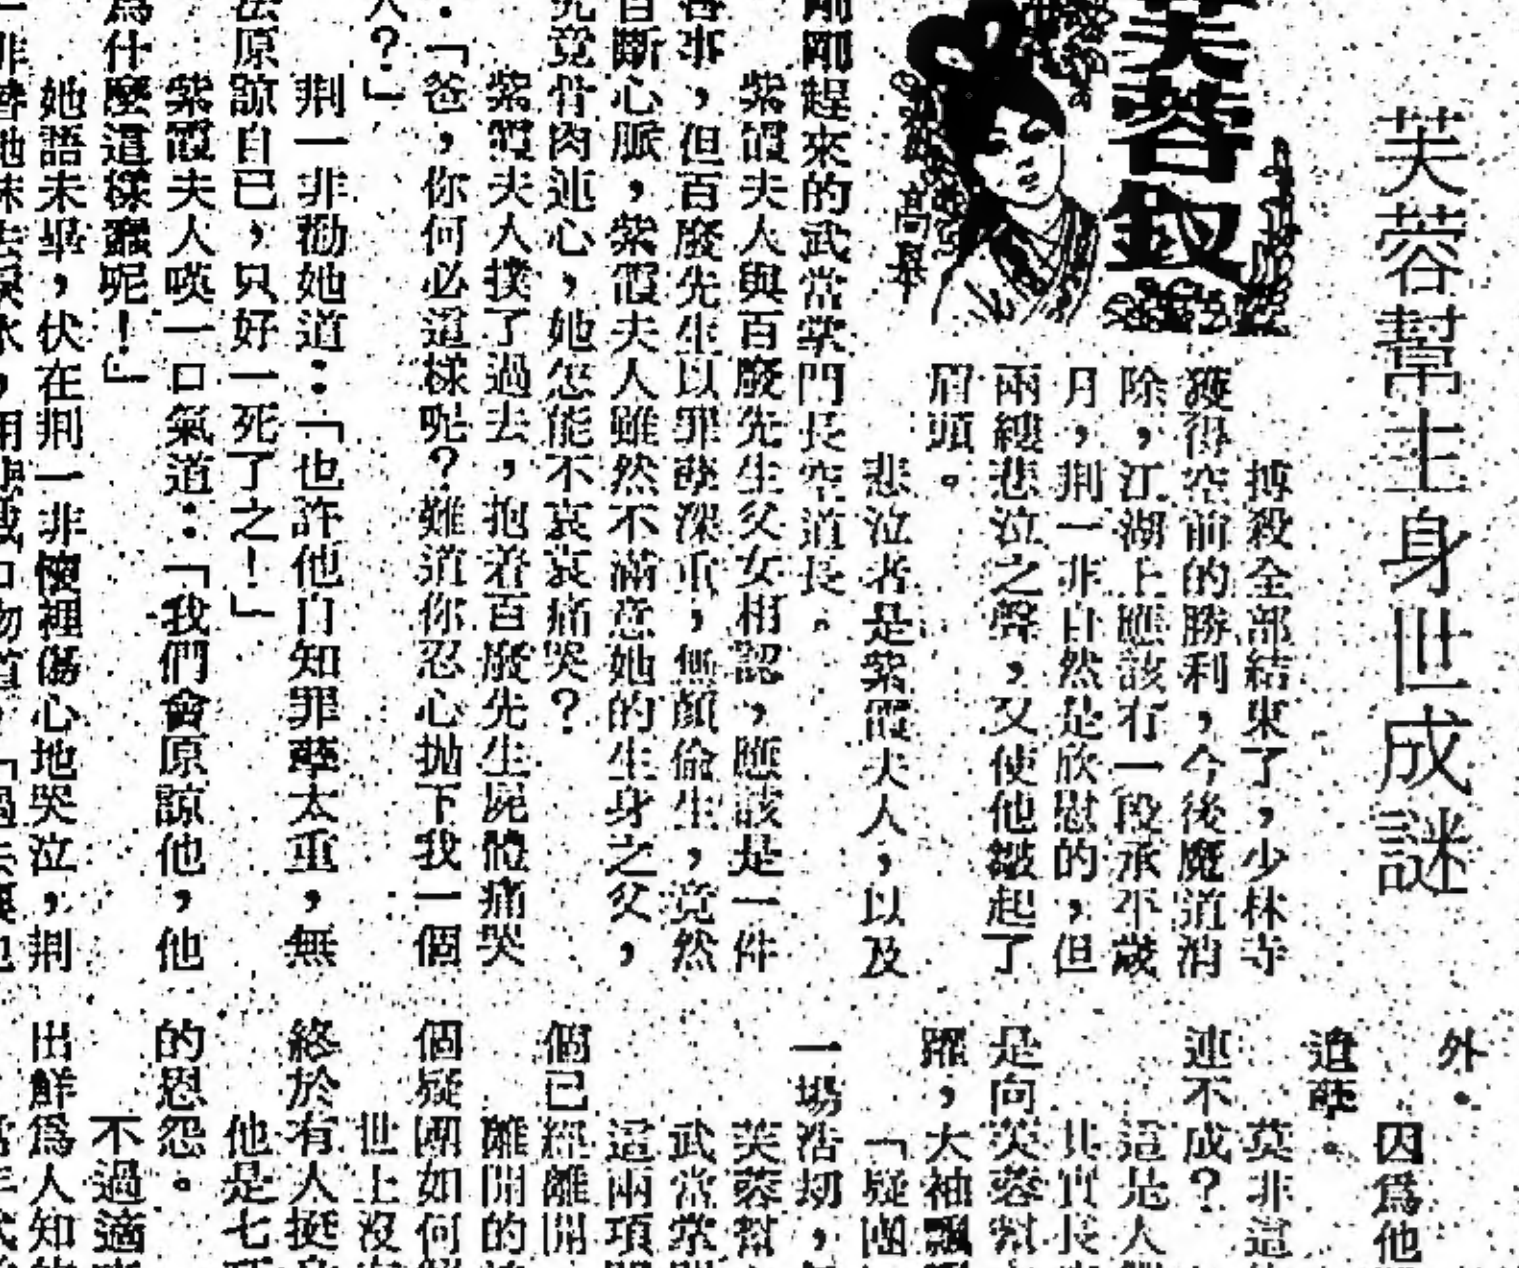 芙蓉幫主身世成謎
芙蓉釵
高皋
搏殺全部結束了,少林寺
獲得空前的勝利,今後魔道消
除,江湖上應該有一段承平歲
月,荆一非自然是欣慰的,但
兩縷悲泣之聲,又使他皺起了
眉頭。
悲泣者是紫霞夫人,以及
剛剛趕來的武當掌門長空道長。
紫霞夫人與百廢先生父女相認,應該是一件
喜事,但百廢先生以罪孽深重,無顏偷生,竟然
自斷心脈,紫霞夫人雖然不滿意她的生身之父,
究竟骨肉連心,她怎能不哀哀痛哭?
紫霞夫人撲了過去,抱着百廢先生屍體痛哭
:「爸,你何必這樣呢?難道你忍心拋下我一個
人?」
荆一非勸她道:「也許他自知罪孽太重,無
法原諒自已,只好一死了之!」
紫霞夫人嘆一口氣道:「我們會原諒他,他
爲什麼這樣蠢呢!』
她語未畢,伏在荆一非懷裡傷心地哭泣,荆
一非替她抹去淚水,
外。
因爲他
追孽。
莫非這
連不成?
這是人
其實長
是向芙蓉幫
躍,大袖飄
「疑團
一場浩刼,
芙蓉幫
武當掌
這兩項
個已經離開
離開的
個疑團如何
世上沒
終於有人挺
他是七
的恩怨。
不過適
出鮮爲人知